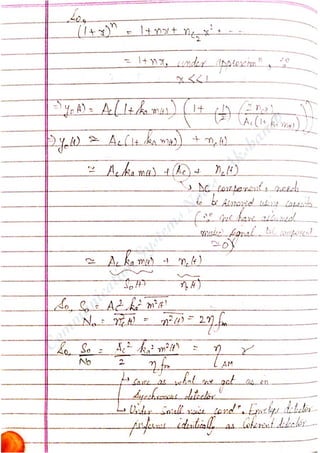 So,
(1+x)^n = 1 + nx + nC2 x² + ...
= 1 + nx, under approxim^n, ∵ x<<1
⇒ y0(t) = Ac(1+ka m(t)) (1 + (1/2) (2 nc(t) / Ac(1+ka m(t))))
⇒ y0(t) ≃ Ac(1+ka m(t)) + nc(t)
≃ Ac ka m(t) + (Ac) + nc(t)
→ DC component, needs
to be removed using capacitor
(∵ we have assumed
signal DC component
= 0)
≃ Ac ka m(t) + nc(t)
S0(t) nc(t)
So, So = Ac² ka² m²(t)
No = nc²(t) = n²(t) = 2ηfm
So, So/No = Ac²/2 ka² m²(t) / ηfm = η_AM γ
→ same as what we got as in
Synchronous detector
→ Under Small noise cond^n, Envelope detector
performs identically as Coherent detector.